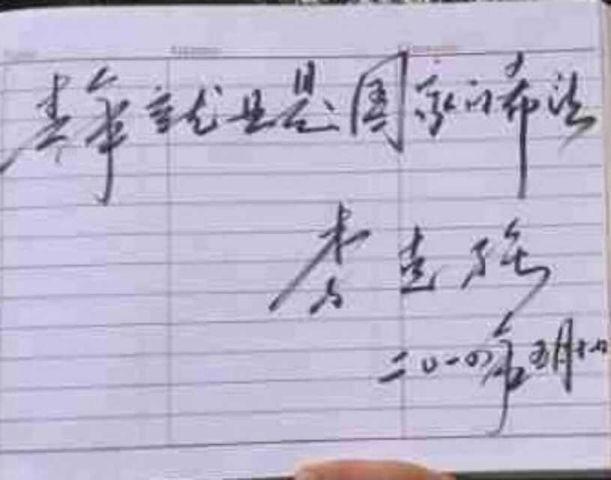 青年就是国家的希望
李克强
二〇一四年五月十八